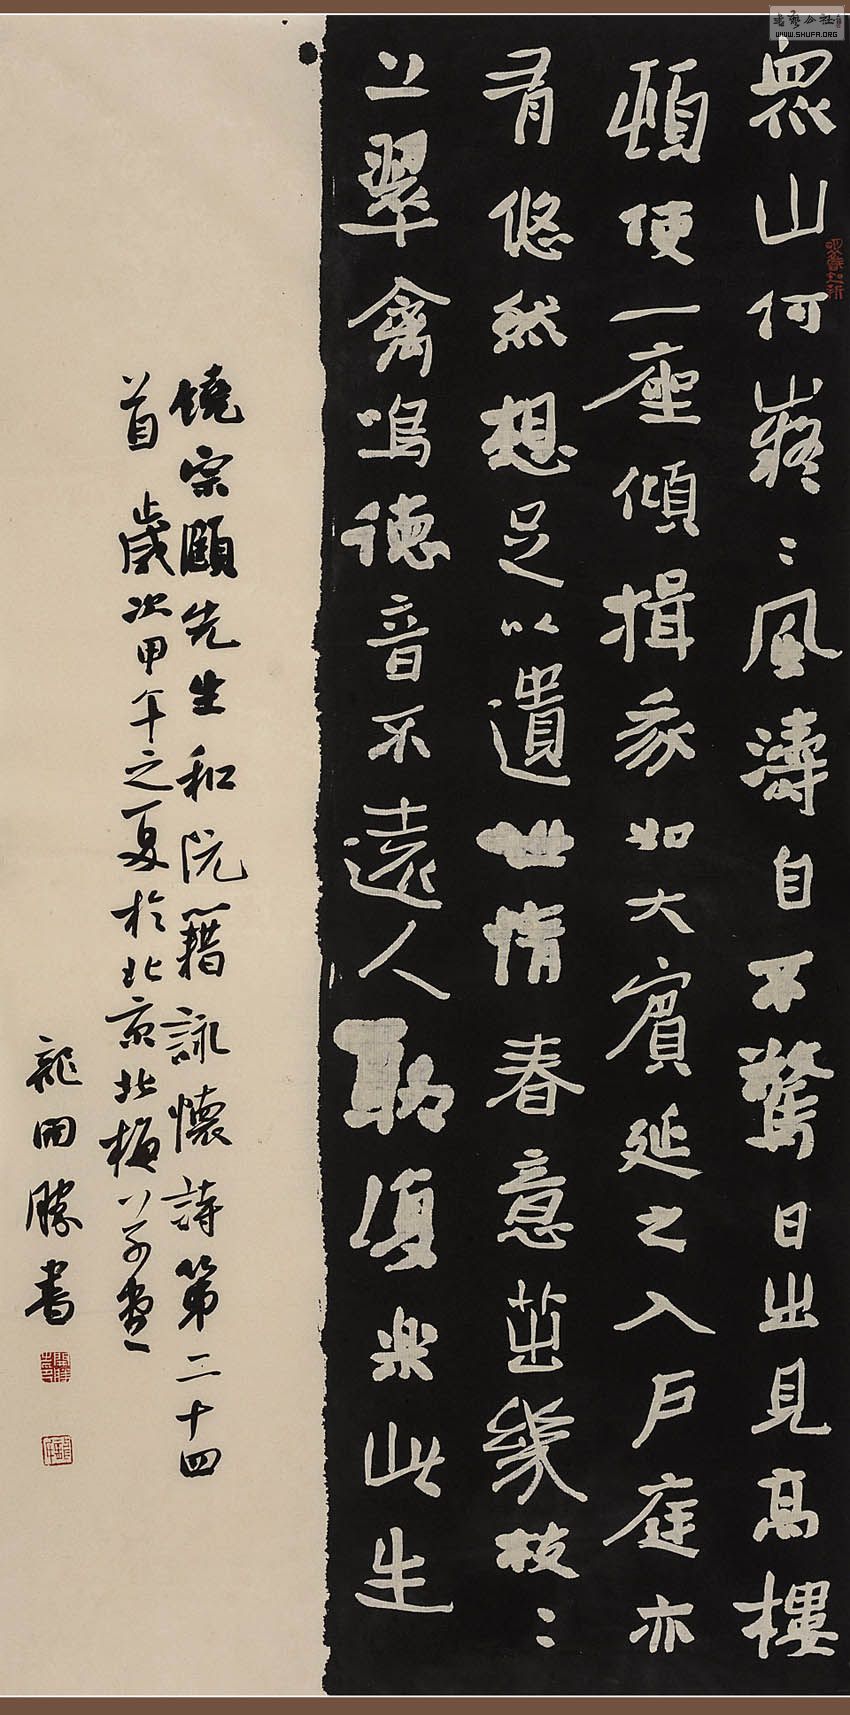 書藝公社
WWW.SHUFA.ORG
眾山何〻風濤自不驚日出見高樓
頓使一座傾揖我如大賓延之入戶庭亦
有悠然想足以遺世情春意茁幾枝〻
上翠禽鳴德音不遠人聊復楽此生
饒宗頤先生和阮籍詠懷詩第二十四
首 歲次甲午之夏於北京北梅草堂
龍開勝書